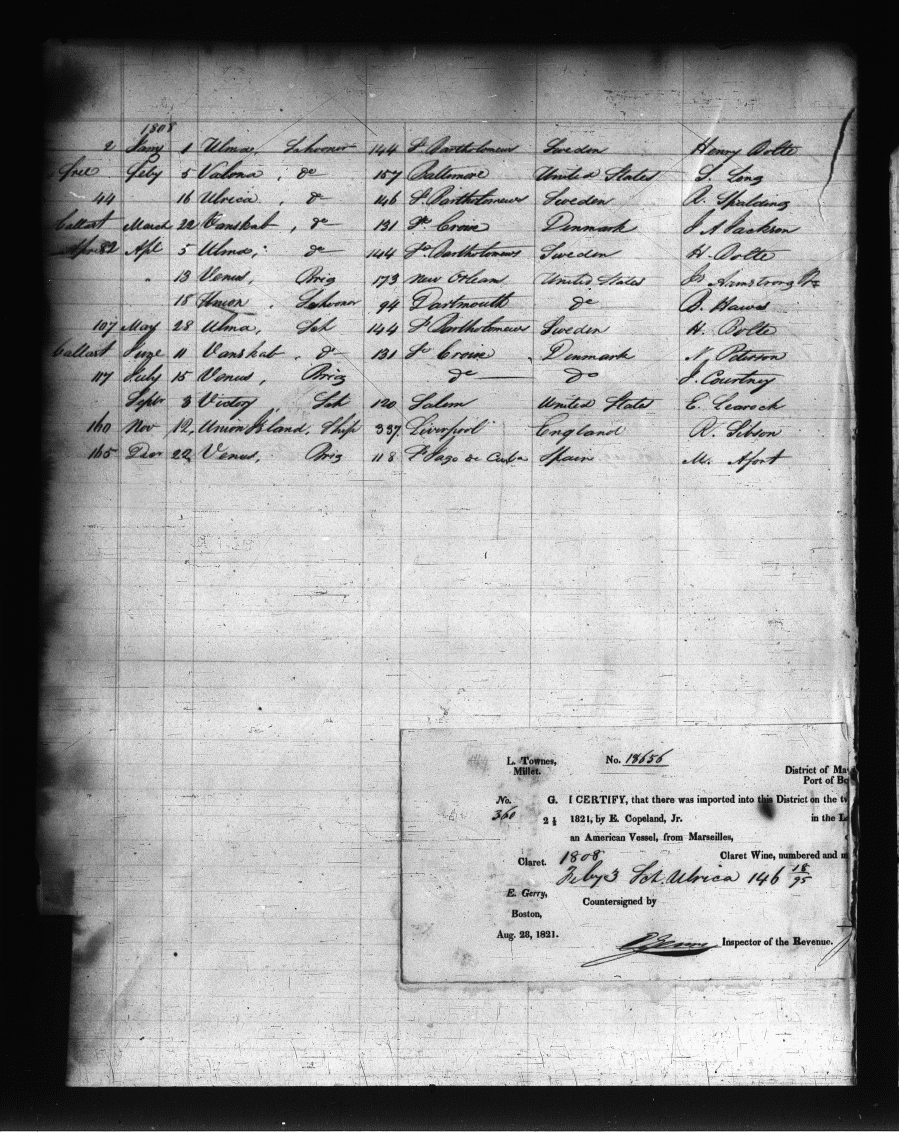 1808
2 Jany 1 Ulma, Schooner 144 St Bartholomews Sweden Henry Bolte
free Feby 5 Valona, do 157 Baltimore United States S. Long
44 16 Ulrica, do 146 St Bartholomews Sweden R. Spalding
ballast March 22 Vanskab, do 131 St Croix Denmark J A Jackson
82 Apl 5 Ulma, do 144 St Bartholomews Sweden H. Bolte
" 13 Venus, Brig 173 New Orleans United States Armstrong Jr
18 Union, Schooner 94 Dartmouth do B. Hawes
107 May 28 Ulma, Sch 144 St Bartholomews Sweden H. Bolte
ballast June 11 Vanskab, do 131 St Croix Denmark N. Peterson
117 July 15 Venus, Brig do do J. Courtney
Septr 3 Victory, Sch 120 Salem United States E.
160 Nov 12, Union Island, Ship 337 Liverpool England R. Gibson
165 Decr 22 Venus, Brig 118 St Jago de Cuba Spain M. Afort
L. Townes, No. 18656
Millet.
District of
Port of
No. G. I CERTIFY, that there was imported into this District on the
360 2½ 1821, by E. Copeland, Jr. in the
an American Vessel, from Marseilles,
Claret. 1808 Claret Wine, numbered and
Feby 3 Sch. Ulrica 146 18/95
E. Gerry, Countersigned by
Boston,
Aug. 28, 1821.
Inspector of the Revenue.